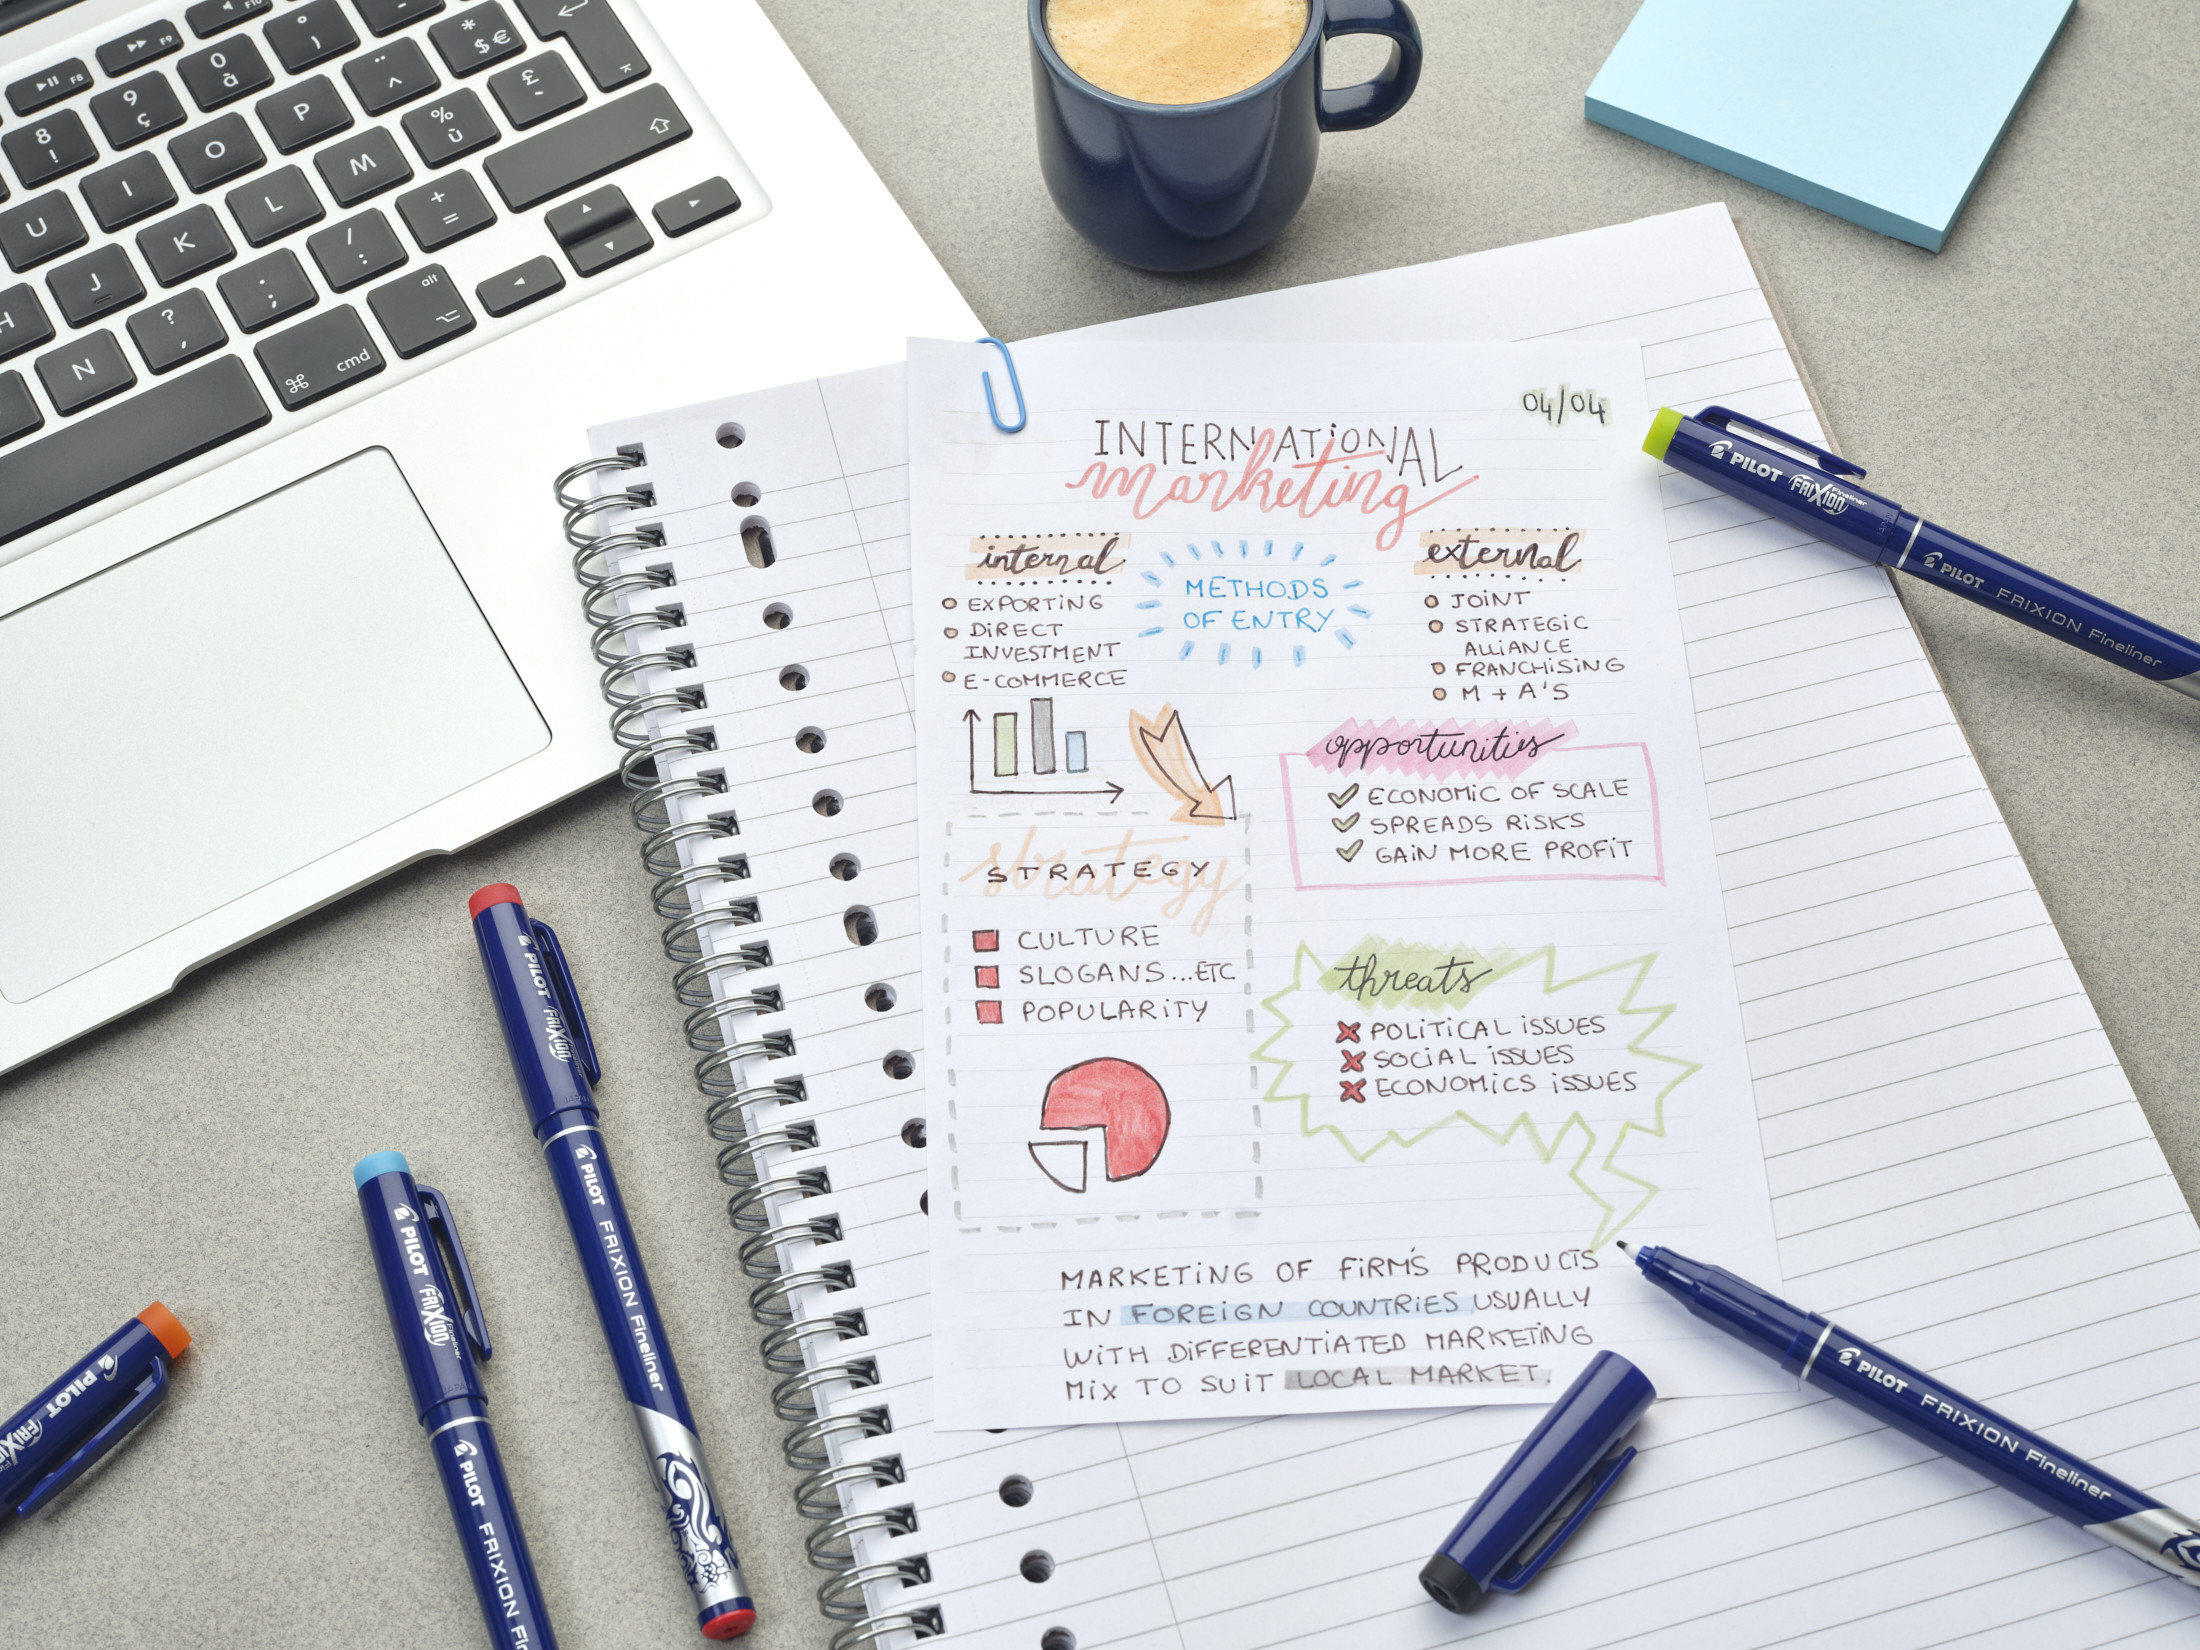 F8
F9
F10
8 !
9 ç
0 à
° )
¨ ^
* $ €
U
I
O
P
% ù
£ `
J
K
L
M
H
N
? ,
. ;
/ :
+ =
alt
cmd
04/04
INTERNATIONAL
marketing
internal
EXPORTING
DIRECT
INVESTMENT
E-COMMERCE
METHODS
OF ENTRY
external
JOINT
STRATEGIC
ALLIANCE
FRANCHISING
M + A'S
opportunities
ECONOMIC OF SCALE
SPREADS RISKS
GAIN MORE PROFIT
strategy
STRATEGY
CULTURE
SLOGANS...ETC
POPULARITY
threats
POLITICAL ISSUES
SOCIAL ISSUES
ECONOMICS ISSUES
MARKETING OF FIRM'S PRODUCTS
IN FOREIGN COUNTRIES USUALLY
WITH DIFFERENTIATED MARKETING
MIX TO SUIT LOCAL MARKET.
PILOT FRIXION Fineliner
JAPAN
PILOT FRIXION Fineliner
PILOT FRIXION
JAPAN
PILOT FRIXION Fineliner
PILOT FRIXION Fineliner
JAPAN
PILOT FRIXION Fi
PILOT FRIXION
PILOT FRIXION Fineliner